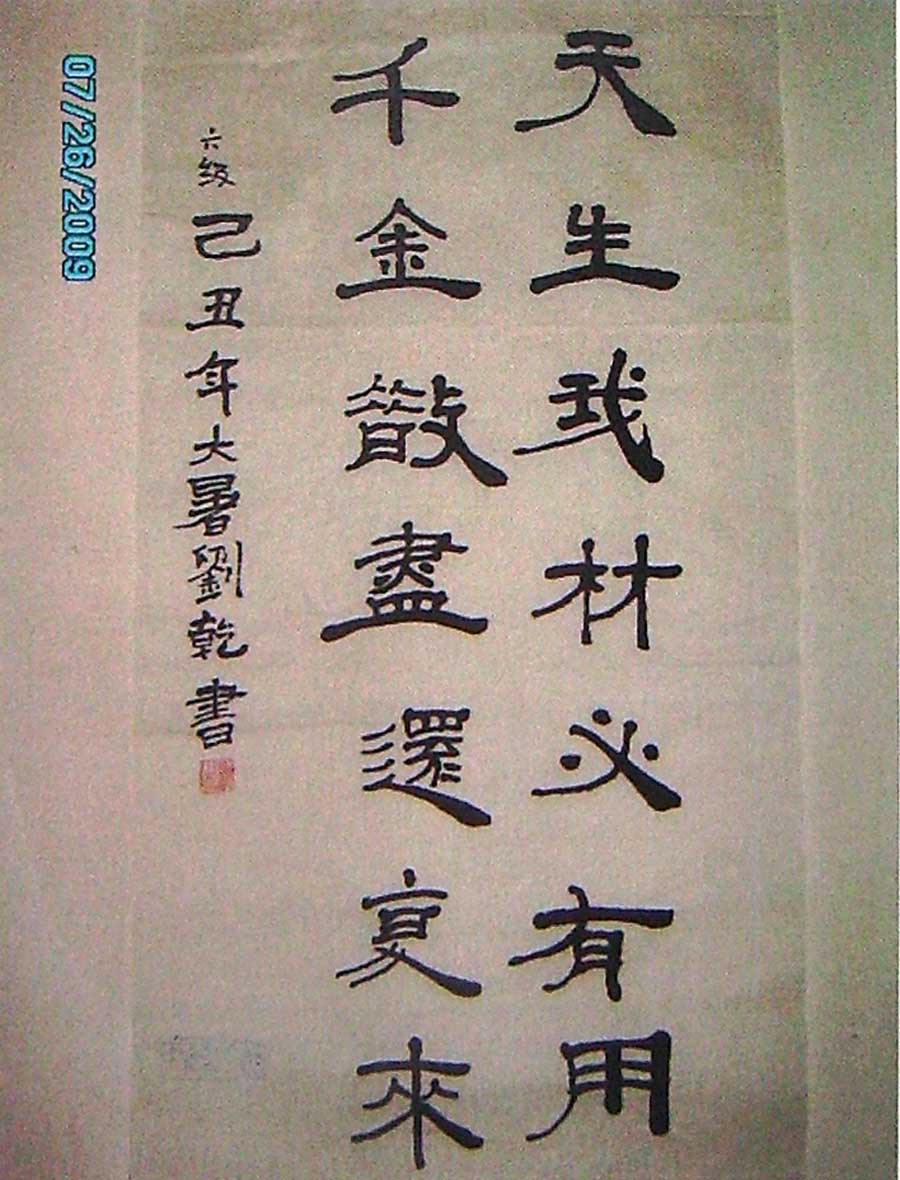 天生我材必有用
千金散盡還復來
六级 己丑年大暑劉乾書
07/26/2009